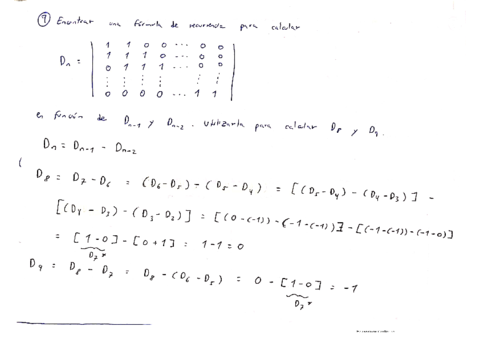 9 Encontrar una fórmula de recurrencia para calcular
Dn = | 1 1 0 0 ... 0 0 |
| 1 1 1 0 ... 0 0 |
| 0 1 1 1 ... 0 0 |
| : : : : : : |
| 0 0 0 0 ... 1 1 |
en función de Dn-1 y Dn-2. Utilizarla para calcular D8 y D9.
Dn = Dn-1 - Dn-2
D8 = D7 - D6 = (D6 - D5) - (D5 - D4) = [(D5-D4) - (D4-D3)] -
[(D4 - D3) - (D3 - D2)] = [(0-(-1)) - (-1-(-1))] - [(-1-(-1)) - (-1-0)]
= [1-0] - [0+1] = 1-1 = 0
D7*
D9 = D8 - D7 = D8 - (D6 - D5) = 0 - [1-0] = -1
D7*